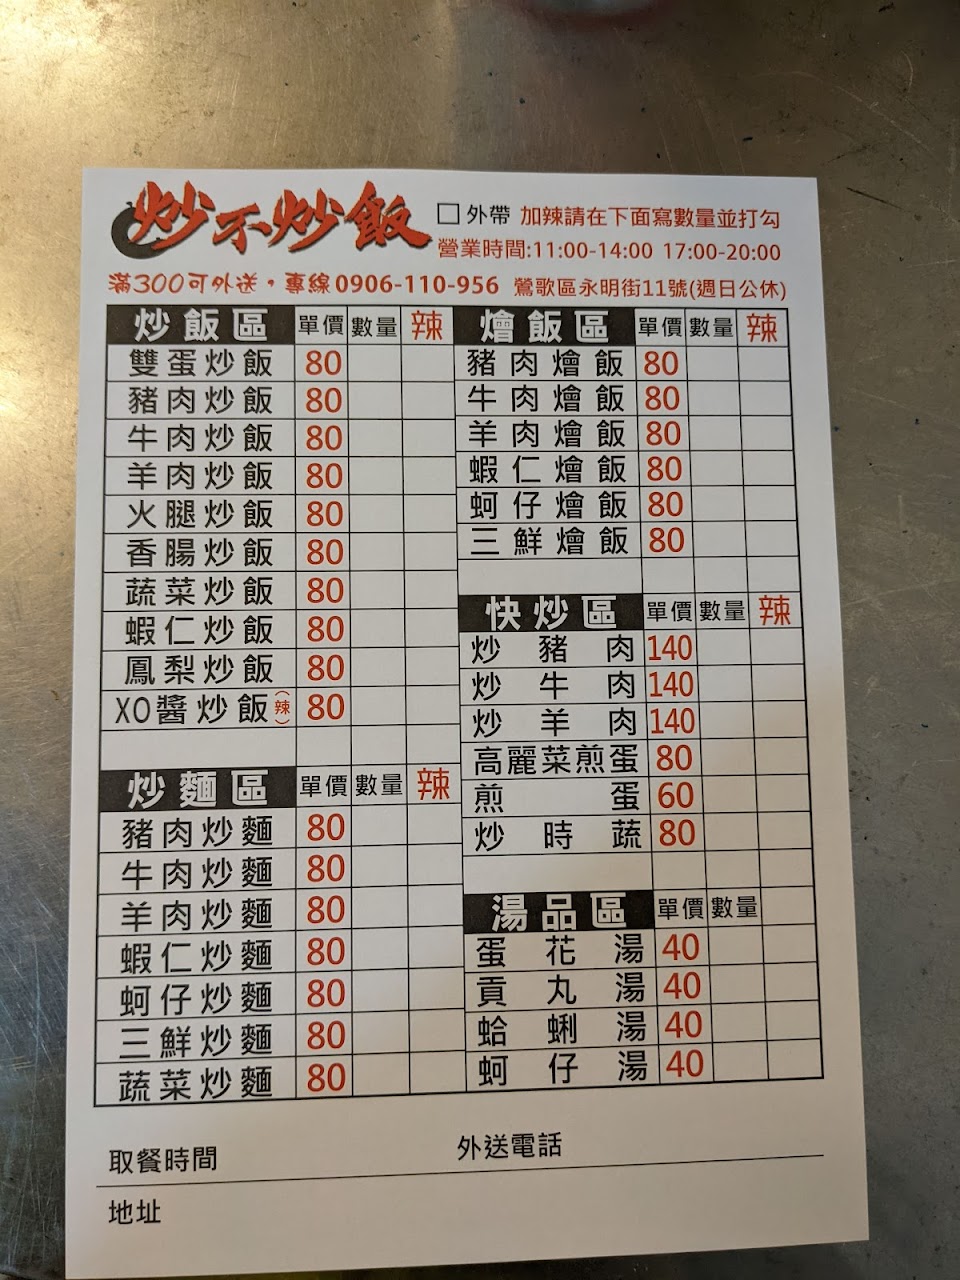 炒不炒飯
□外帶 加辣請在下面寫數量並打勾
營業時間:11:00-14:00 17:00-20:00
滿300可外送，專線0906-110-956 鶯歌區永明街11號(週日公休)
炒飯區 單價 數量 辣
雙蛋炒飯 80
豬肉炒飯 80
牛肉炒飯 80
羊肉炒飯 80
火腿炒飯 80
香腸炒飯 80
蔬菜炒飯 80
蝦仁炒飯 80
鳳梨炒飯 80
XO醬炒飯(辣) 80
炒麵區 單價 數量 辣
豬肉炒麵 80
牛肉炒麵 80
羊肉炒麵 80
蝦仁炒麵 80
蚵仔炒麵 80
三鮮炒麵 80
蔬菜炒麵 80
燴飯區 單價 數量 辣
豬肉燴飯 80
牛肉燴飯 80
羊肉燴飯 80
蝦仁燴飯 80
蚵仔燴飯 80
三鮮燴飯 80
快炒區 單價 數量 辣
炒豬肉 140
炒牛肉 140
炒羊肉 140
高麗菜煎蛋 80
煎蛋 60
炒時蔬 80
湯品區 單價 數量
蛋花湯 40
貢丸湯 40
蛤蜊湯 40
蚵仔湯 40
取餐時間 外送電話
地址